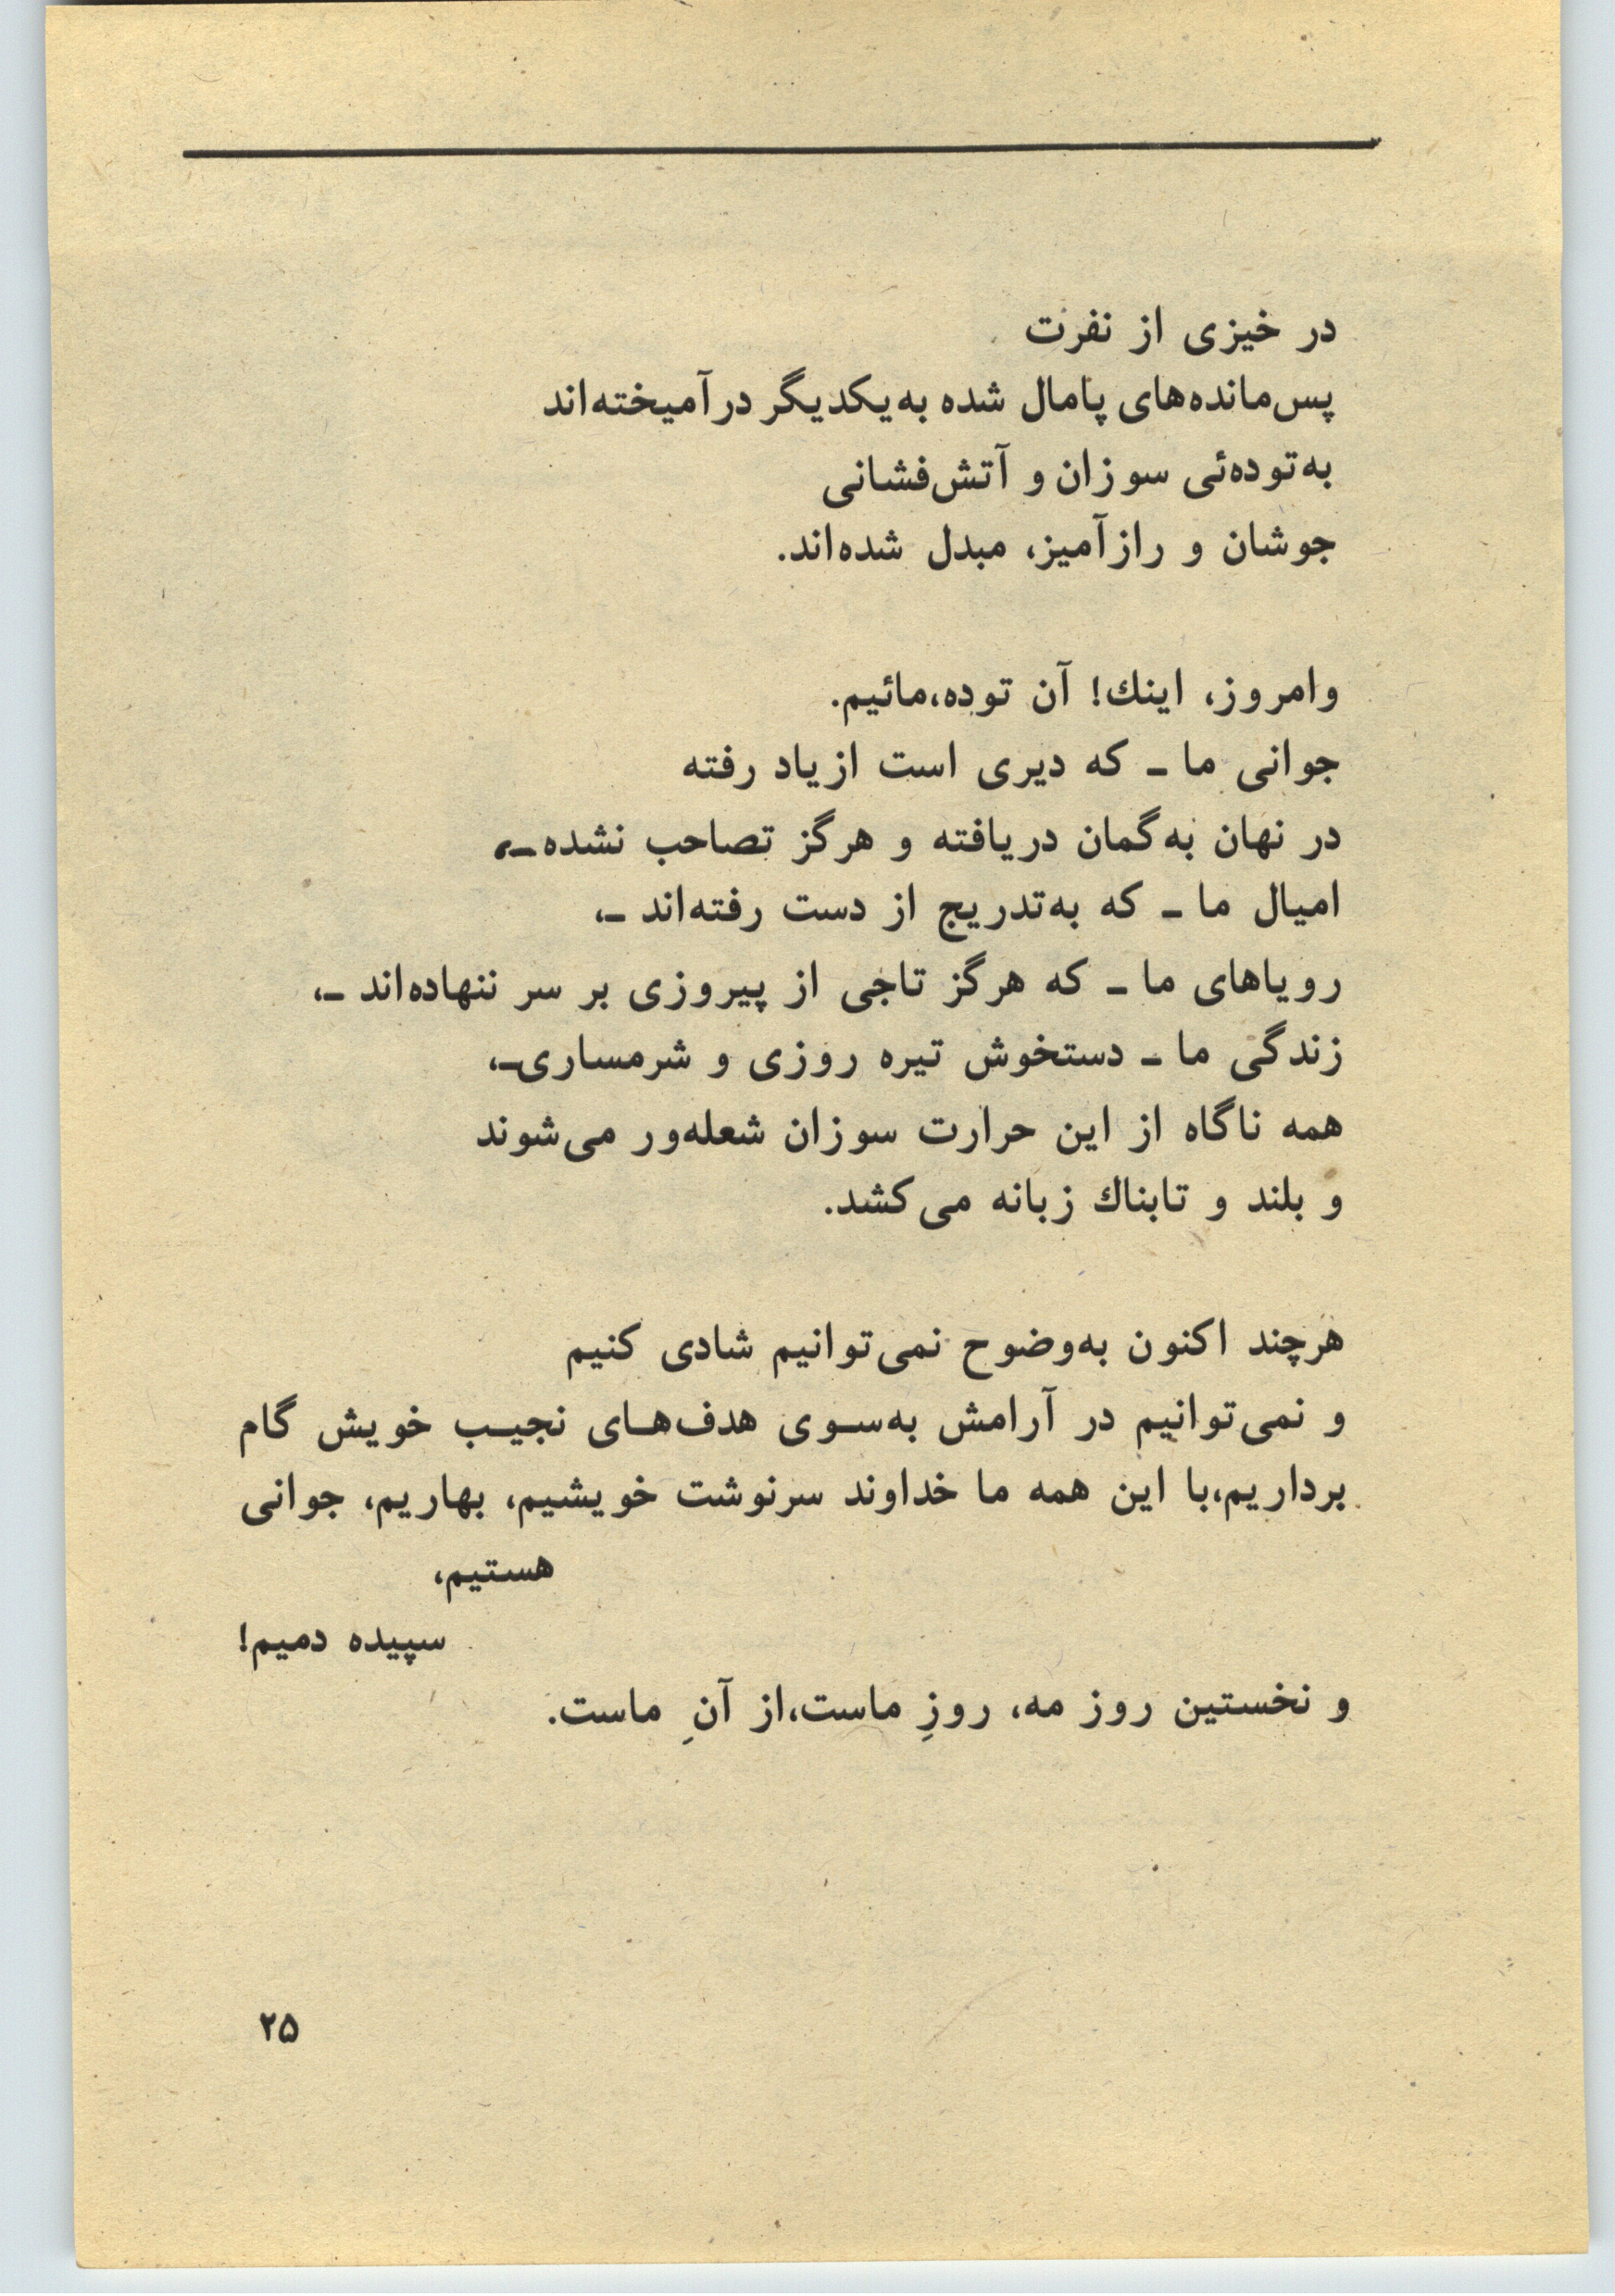 در خیزی از نفرت
پس‌مانده‌های پامال شده به‌یکدیگر درآمیخته‌اند
به‌توده‌ئی سوزان و آتش‌فشانی
جوشان و رازآمیز، مبدل شده‌اند.
وامروز، اینك! آن توده،مائیم.
جوانی ما ـ که دیری است ازیاد رفته
در نهان به‌گمان دریافته و هرگز تصاحب نشده ـ،
امیال ما ـ که به‌تدریج از دست رفته‌اند ـ،
رویاهای ما ـ که هرگز تاجی از پیروزی بر سر ننهاده‌اند ـ،
زندگی ما ـ دستخوش تیره روزی و شرمساری‌ـ،
همه ناگاه از این حرارت سوزان شعله‌ور می‌شوند
و بلند و تابناك زبانه می‌کشد.
هرچند اکنون به‌وضوح نمی‌توانیم شادی کنیم
و نمی‌توانیم در آرامش به‌سوی هدف‌های نجیب خویش گام
برداریم،با این همه ما خداوند سرنوشت خویشیم، بهاریم، جوانی
هستیم،
سپیده دمیم!
و نخستین روز مه، روزِ ماست،از آنِ ماست.
۲۵